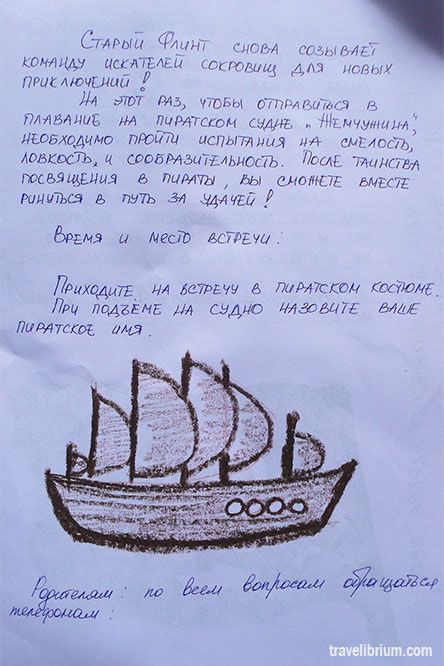 Старый Флинт снова созывает
команду искателей сокровищ для новых
приключений!
На этот раз, чтобы отправиться в
плавание на пиратском судне „Жемчужина",
необходимо пройти испытания на смелость,
ловкость, и сообразительность. После таинства
посвящения в пираты, вы сможете вместе
ринуться в путь за удачей!
Время и место встречи:
Приходите на встречу в пиратском костюме.
При подъёме на судно назовите ваше
пиратское имя.
Родителям: по всем вопросам обращаться
телефонам:
travelibrium.com